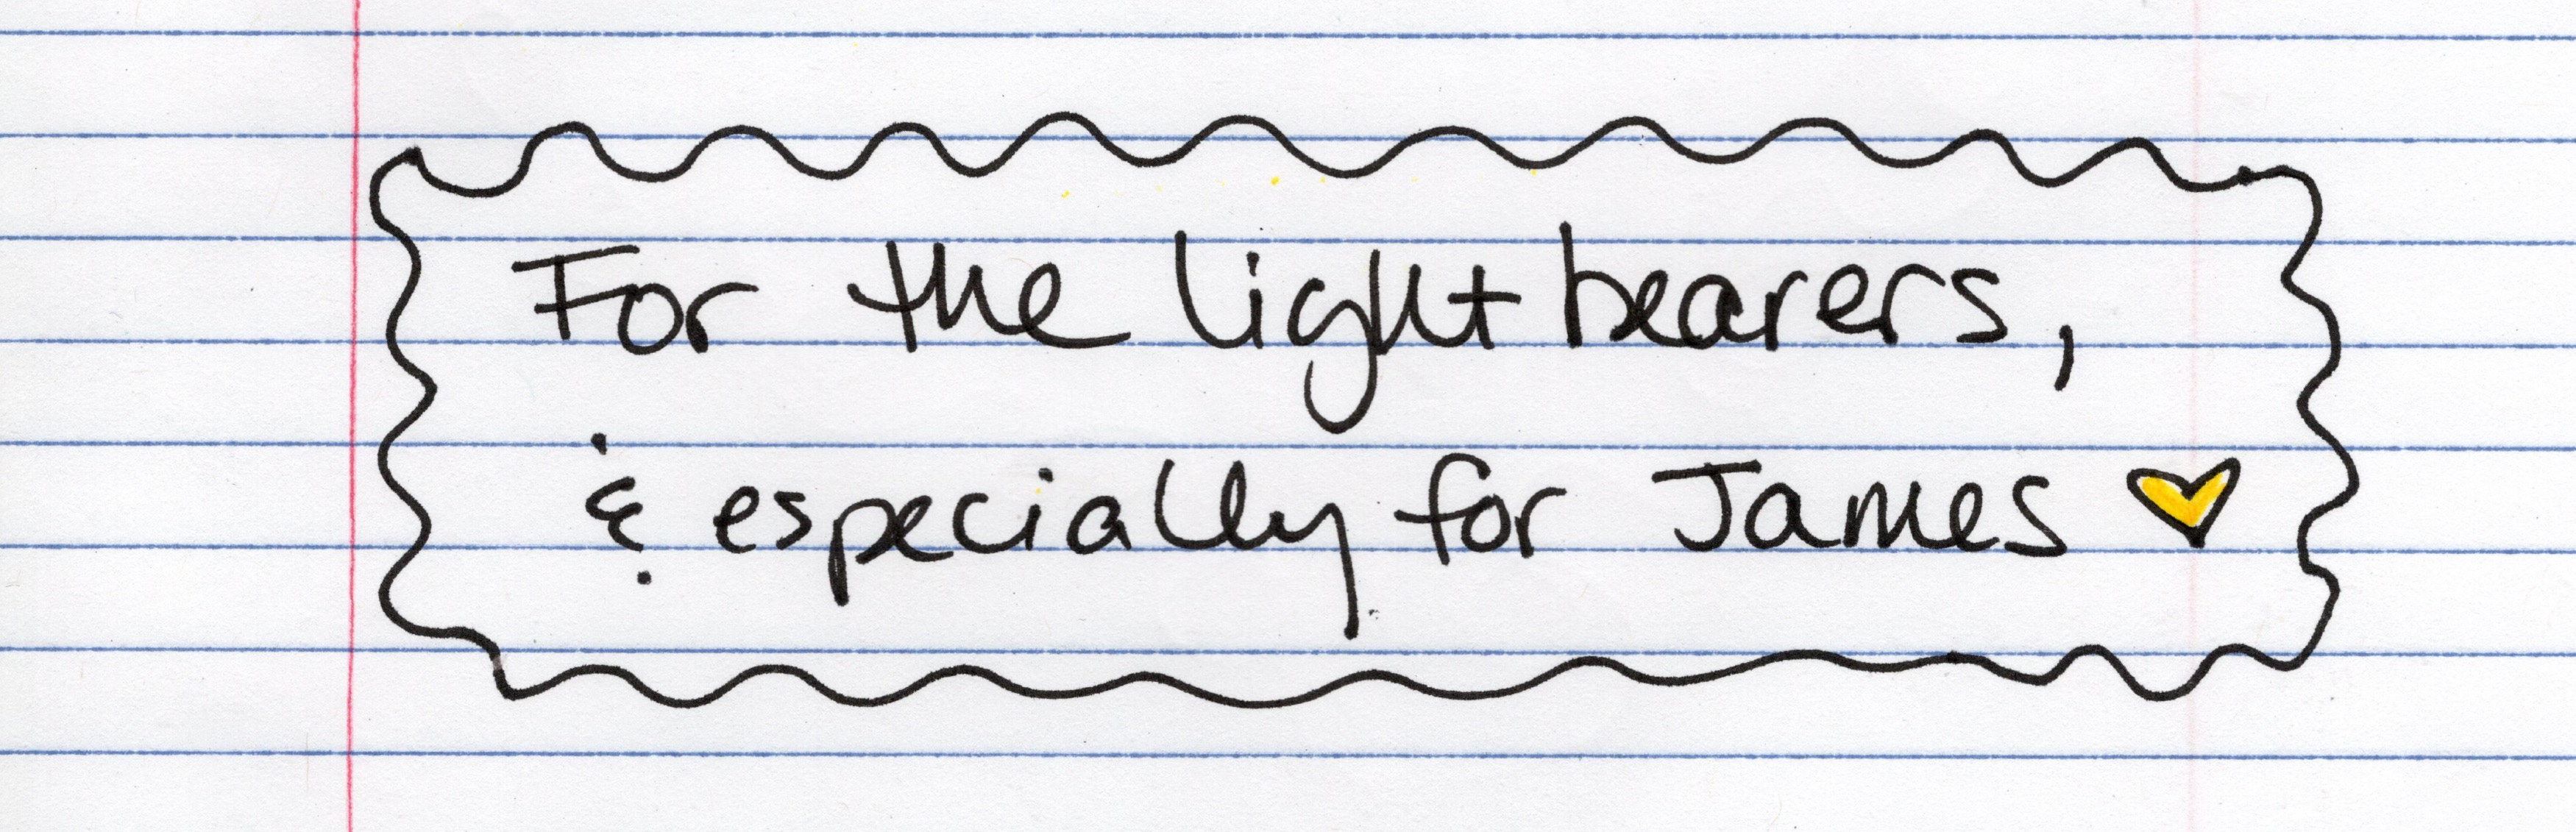 For the light bearers,
& especially for James